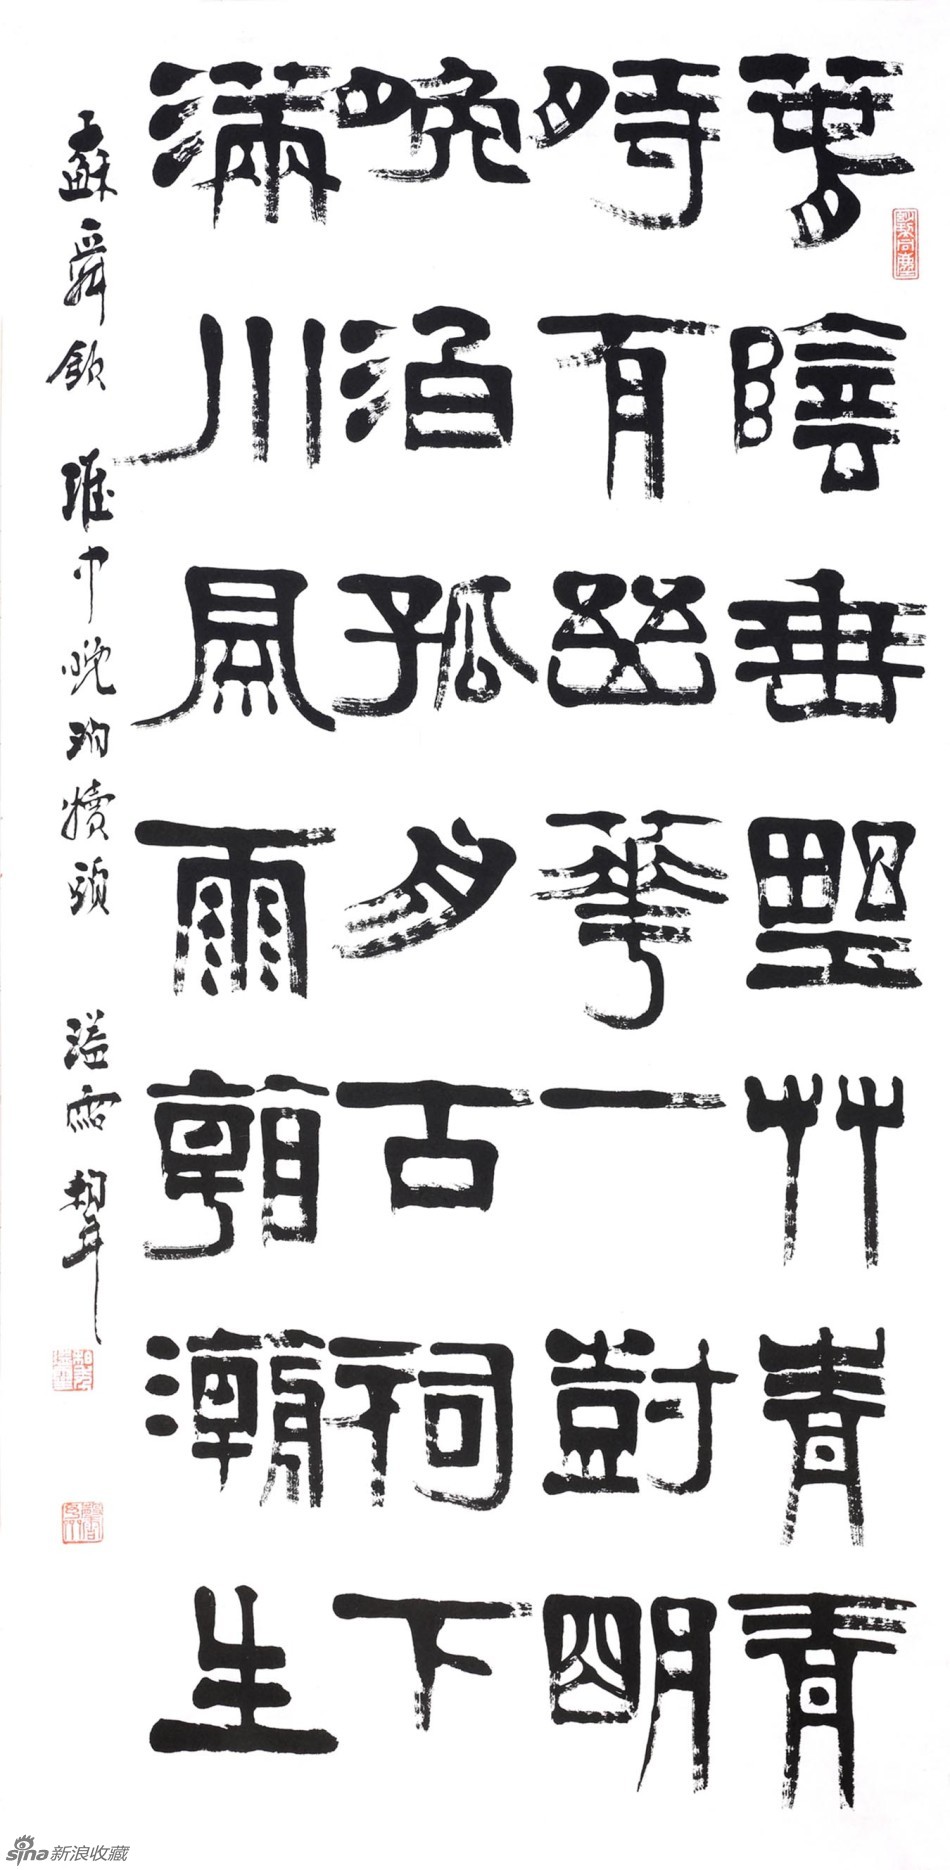 春陰垂野艸青青
時有幽華一尌明
晚泊孤舟古祠下
滿川風雨看潮生
蘇舜欽 淮中晚泊犢頭
sina新浪收藏